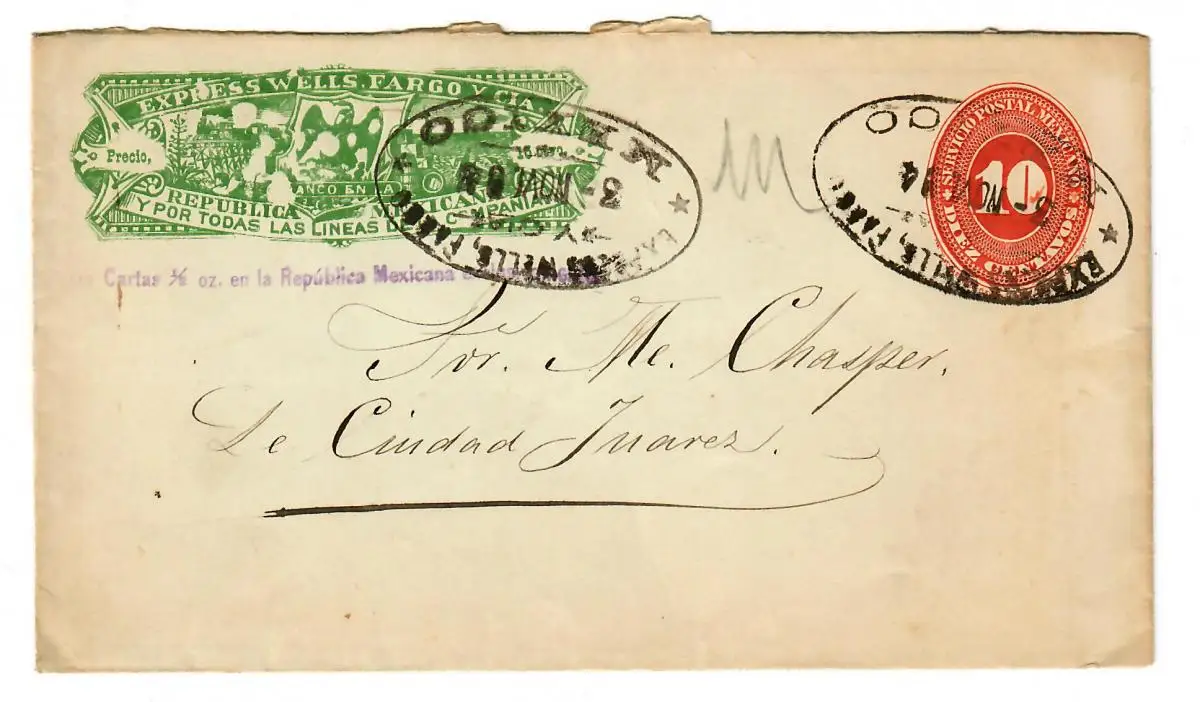 EXPRESS WELLS, FARGO Y CIA.
Precio,
FRANCO EN LA
REPUBLICA MEXICANA
Y POR TODAS LAS LINEAS DE COMPAÑIA
Cartas ½ oz. en la República Mexicana
SERVICIO POSTAL MEXICANO
10
DIEZ CENTAVOS
MEXICO
3- NOV
EXPRESS WELLS, FARGO
MEXICO
3- NOV 94
EXPRESS WELLS, FARGO
Sor. Me. Chasper.
De Ciudad Juarez.